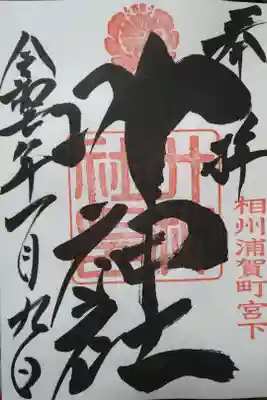 奉拝
相州浦賀町宮下
叶神社
令和年一月九日